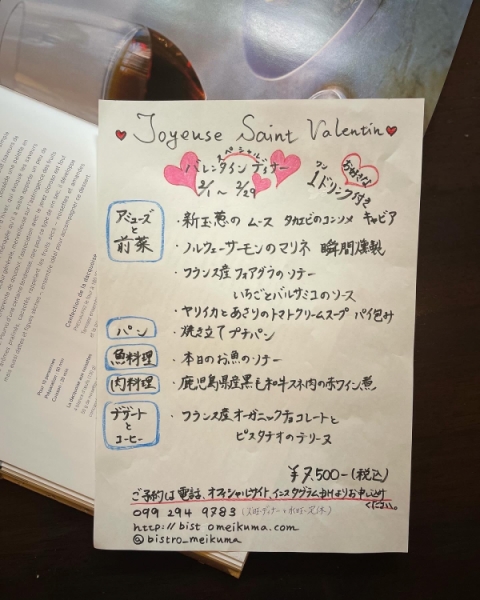 Joyeuse Saint Valentin
スペシャル
バレンタインディナー
2/1 ~ 2/29
お好きな
ワン
1ドリンク付き
アミューズと前菜
・新玉葱の ムース タカエビのコンソメ キャビア
・ノルウェーサーモンのマリネ 瞬間燻製
・フランス産フォアグラのソテー
いちごとバルサミコのソース
・ヤリイカとあさりのトマトクリームスープ パイ包み
パン
・焼き立てプチパン
魚料理
・本日のお魚のソテー
肉料理
・鹿児島県産黒毛和牛スネ肉の赤ワイン煮
デザートとコーヒー
・フランス産オーガニックチョコレートと
ピスタチオのテリーヌ
¥7,500-(税込)
ご予約は電話、オフィシャルサイト、インスタグラムDMよりお申込み
ください。
099 294 9783
http://bist omeikuma.com
@bistro_meikuma